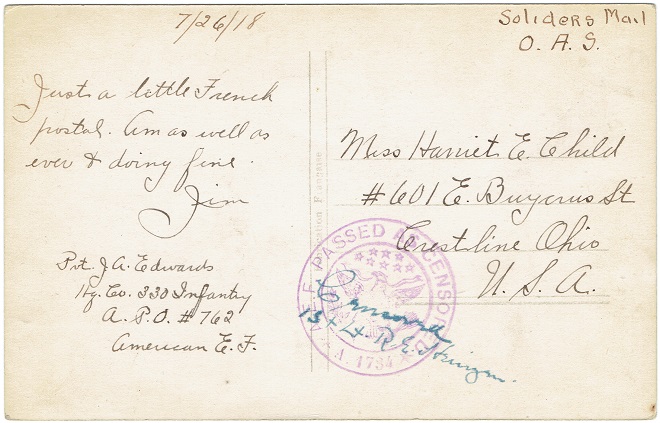 7/26/18
Soliders Mail
O. A. S.
Just a little French
postal. Am as well as
ever & doing fine.
Jim
Pvt. J. A. Edwards
Hq. Co. 330 Infantry
A. P. O. # 762
American E. F.
Miss Harriet E. Child
# 601 E. Bucyrus St
Crestline Ohio
U. S. A.
A.E.F. PASSED AS CENSORED
A. 1734
Censored
1st Lt. R. E.